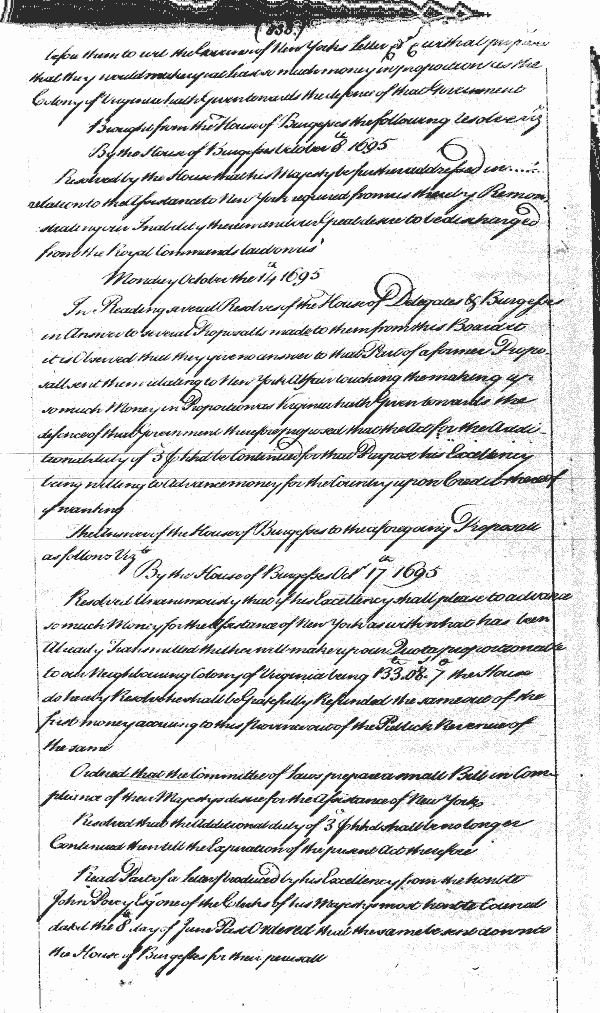 (838)
before them to wit the Governor of New Yorks Letter &c withal prepare
that they would make up at least so much money in proportion as the
Colony of Virginia hath Given towards the defence of that Government
Brought from the House of Burgesses the following resolve viz
By the House of Burgesses October 8th 1695
Resolved by the House that his Majesty be further addressed in
relation to the Assistance to New York required from us thereby Remon-
strating our Inability therein and our Great desire to be discharged
from the Royal Commands laid on us
Monday October the 14th 1695
In Reading several Resolves of the House of Delegates & Burgesses
in Answer to several Proposalls made to them from this Board
it is Observed that they give no answer to that Part of a former Propo-
sall sent them relating to New York Affair touching the making up
so much Money in Proportion as Virginia hath Given towards the
defence of that Government therefore proposed that the Act for the Addi-
tional duty of 3d P hhd be Continued for that Purpose his Excellency
being willing to Advance money for the Country upon Credit thereof
if wanting
The Answer of the House of Burgesses to the aforegoing Proposall
as follows Vizt
By the House of Burgesses Octr 17th 1695
Resolved Unanimously that if his Excellency shall please to advance
so much Money for the Assistance of New York as with what has been
Already Transmitted thither will make up our Quota proportionable
to our Neighbouring Colony of Virginia being 133. 08. 7 the House
do hereby Resolve he shall be Gratefully Refunded the same out of the
first money accruing to this Province out of the Publick Revenue of
the same
Ordered that the Committee of Laws prepare a small Bill in Com-
pliance of their Majestys desire for the Assistance of New York
Resolved that the Additional duty of 3d P hhd shall be no longer
Continued then till the Expiration of the present Act therefore
Read Part of a letter produced by his Excellency from the honble
John Povey Esqr one of the Clerks of his Majestys most honble Council
dated the 8th day of June Past Ordered that the same be sent down to
the House of Burgesses for their perusall